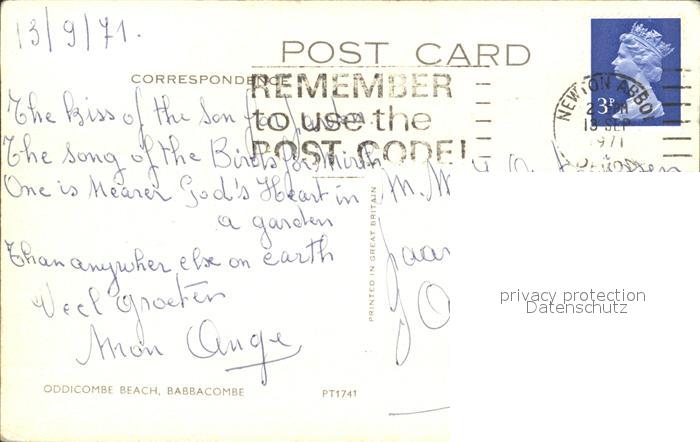 13/9/71.
POST CARD
CORRESPONDENCE
REMEMBER
to use the
POST CODE!
NEWTON ABBOT
2 PM
13 SEP
1971
DEVON
3P
The kiss of the son for Pardon
The song of the Birds for Mirth
One is Nearer God's Heart in
a garden
Than anywher else on earth
Veel Groeten
Ange
M. M
Jaar
PRINTED IN GREAT BRITAIN
privacy protection
Datenschutz
ODDICOMBE BEACH, BABBACOMBE
PT1741